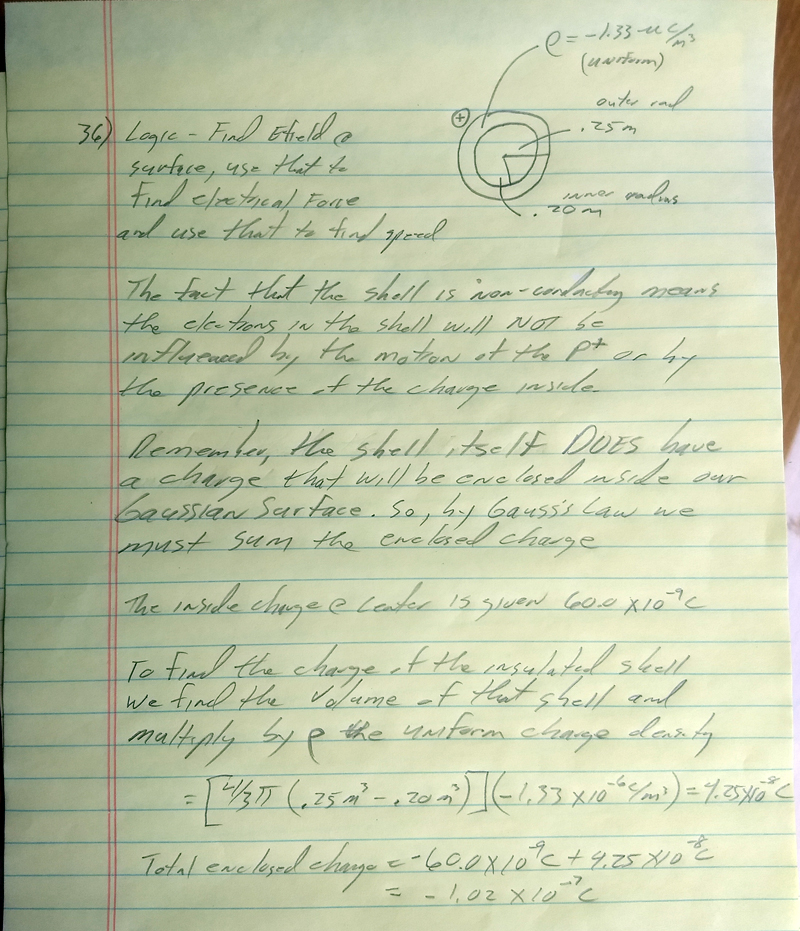 ρ = -1.33 μC/m³
(uniform)
outer rad
.25 m
inner radius
.20 m
+
36) Logic - Find Efield @
surface, use that to
find electrical Force
and use that to find speed
The fact that the shell is non-conducting means
the electrons in the shell will NOT be
influenced by the motion of the P+ or by
the presence of the charge inside.
Remember, the shell itself DOES have
a charge that will be enclosed inside our
Gaussian Surface. So, by Gauss's Law we
must sum the enclosed charge
The inside charge @ center is given 60.0 x10⁻⁹C
To find the charge of the insulated shell
we find the volume of that shell and
multiply by ρ the uniform charge density
= [4/3π (.25m³ - .20m³)](-1.33 x10⁻⁶C/m³) = 4.25x10⁻⁸C
Total enclosed charge = -60.0x10⁻⁹C + 4.25 x10⁻⁸C
= -1.02 x10⁻⁷C